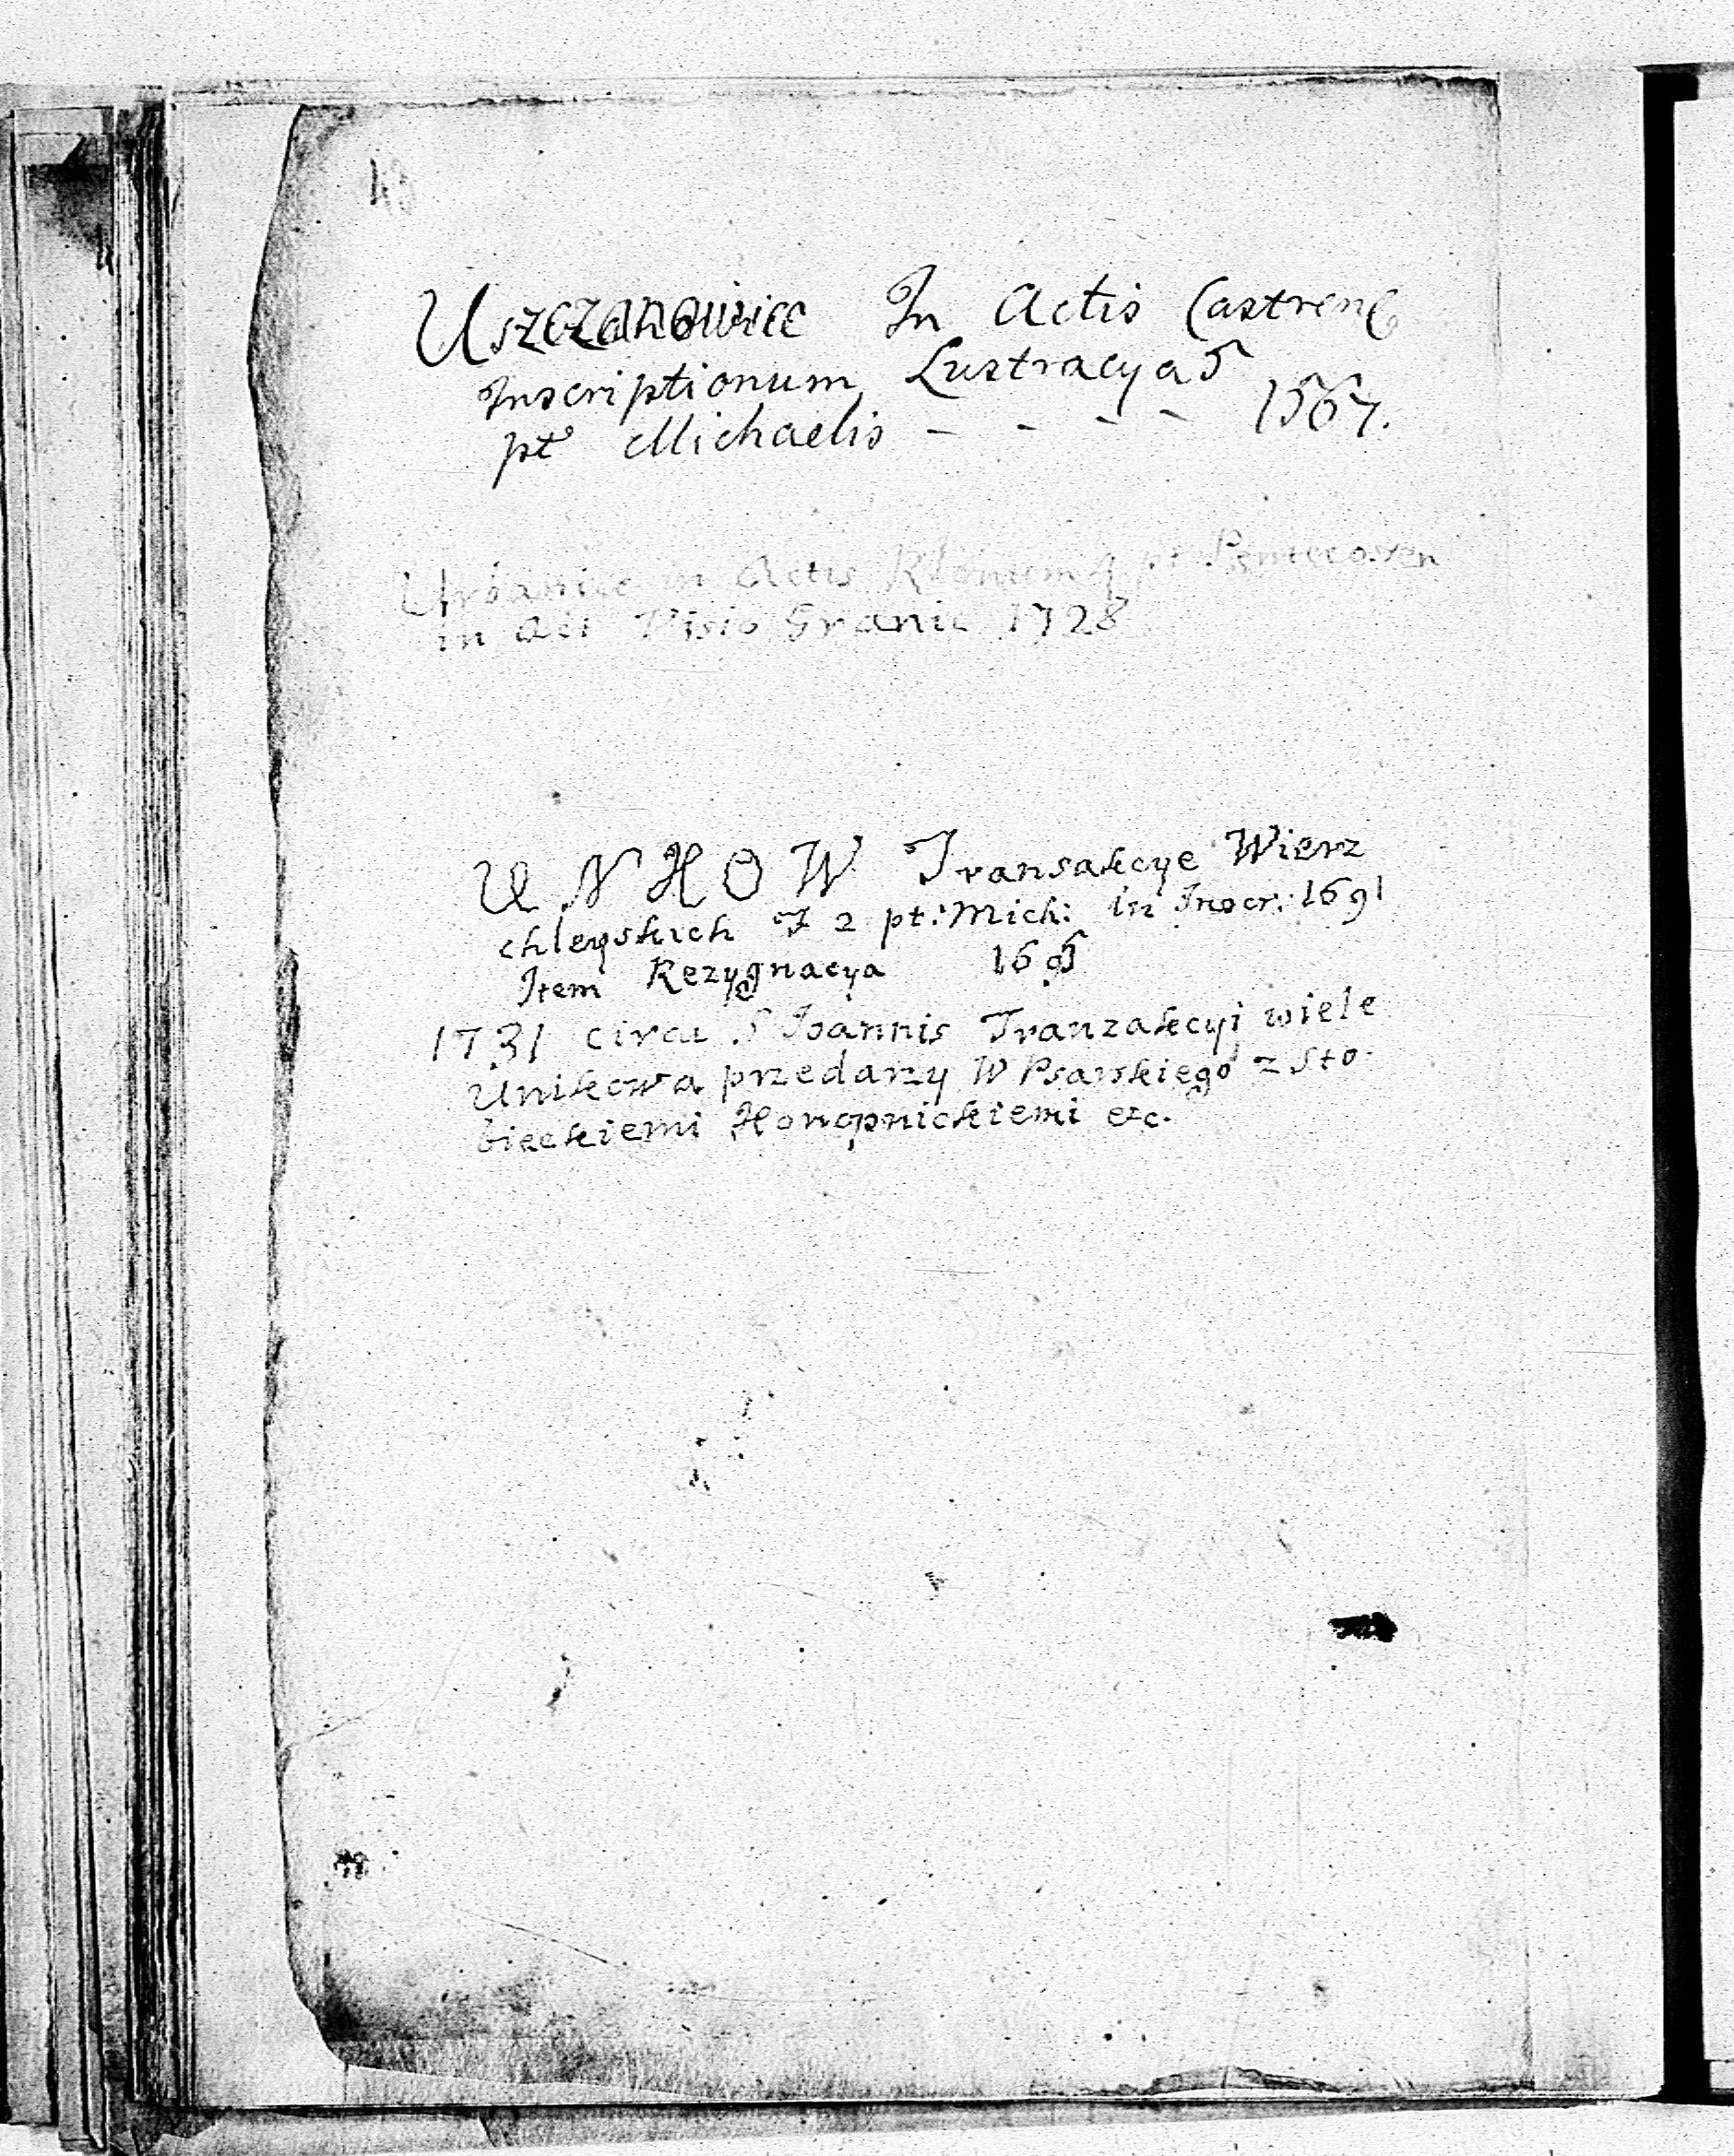 Uszczanowice In Actis Castren
Inscriptionum Lustracya 5
pt Michaelis - - - - 1567.
Urbanice in Actis pt Pentecosten
in Act Visio Granic 1728
UNKOW Transakcye Wierz
chleyskich F 2 pt: Mich: in Inscr: 1691
Item Rezygnacya 1695
1731 circa S Joannis Tranzakcyi wiele
Unikowa przedarzy W Psarskiego z Sto-
bieckiemi Konopnickiemi etc.